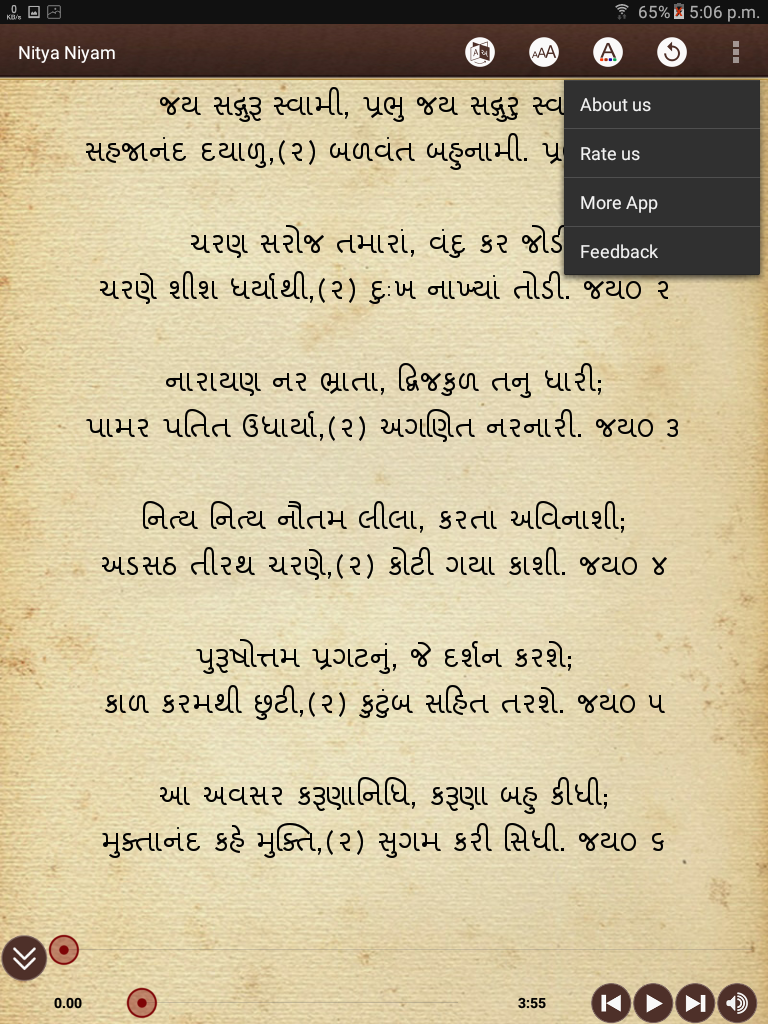 0
KB/s
65% 5:06 p.m.
Nitya Niyam
A RA
AAA
A
About us
Rate us
More App
Feedback
જય સદ્ગુરૂ સ્વામી, પ્રભુ જય સદ્ગુરુ
સહજાનંદ દયાળુ,(૨) બળવંત બહુનામી.
ચરણ સરોજ તમારાં, વંદુ કર જોડી
ચરણે શીશ ધર્યાથી,(૨) દુઃખ નાખ્યાં તોડી. જય૦ ૨
નારાયણ નર ભ્રાતા, દ્વિજકુળ તનુ ધારી;
પામર પતિત ઉધાર્યા,(૨) અગણિત નરનારી. જય૦ ૩
નિત્ય નિત્ય નૌતમ લીલા, કરતા અવિનાશી;
અડસઠ તીરથ ચરણે,(૨) કોટી ગયા કાશી. જય૦ ૪
પુરૂષોત્તમ પ્રગટનું, જે દર્શન કરશે;
કાળ કરમથી છુટી,(૨) કુટુંબ સહિત તરશે. જય૦ ૫
આ અવસર કરૂણાનિધિ, કરૂણા બહુ કીધી;
મુક્તાનંદ કહે મુક્તિ,(૨) સુગમ કરી સિધી. જય૦ ૬
0.00 3:55